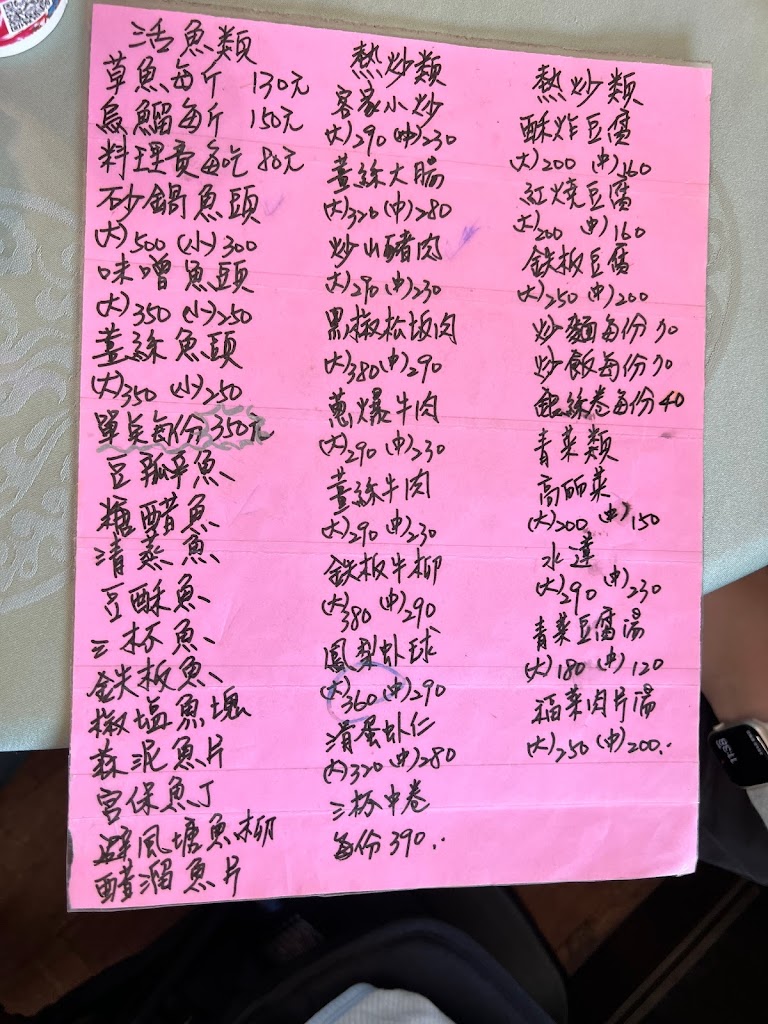 活魚類
草魚每斤 130元
烏鰡每斤 150元
料理費每吃 80元
砂鍋魚頭
(大)500 (小)300
味噌魚頭
(大)350 (小)250
薑絲魚頭
(大)350 (小)250
單點每份350元
豆瓣魚
糖醋魚
清蒸魚
豆酥魚
三杯魚
鉄板魚
椒塩魚塊
蒜泥魚片
宮保魚丁
避風塘魚柳
醋溜魚片
熱炒類
客家小炒
(大)290 (中)230
薑絲大腸
(大)320 (中)280
炒山豬肉
(大)290 (中)230
黑椒松坂肉
(大)380 (中)290
蔥爆牛肉
(大)290 (中)230
薑絲牛肉
(大)290 (中)230
鉄板牛柳
(大)380 (中)290
鳳梨虾球
(大)360 (中)290
滑蛋虾仁
(大)320 (中)280
三杯中卷
每份390.
熱炒類
酥炸豆腐
(大)200 (中)160
紅燒豆腐
(大)200 (中)160
鉄板豆腐
(大)250 (中)200
炒麵每份70
炒飯每份70
銀絲卷每份40
青菜類
高麗菜
(大)200 (中)150
水蓮
(大)290 (中)230
青菜豆腐湯
(大)180 (中)120
福菜肉片湯
(大)250 (中)200.